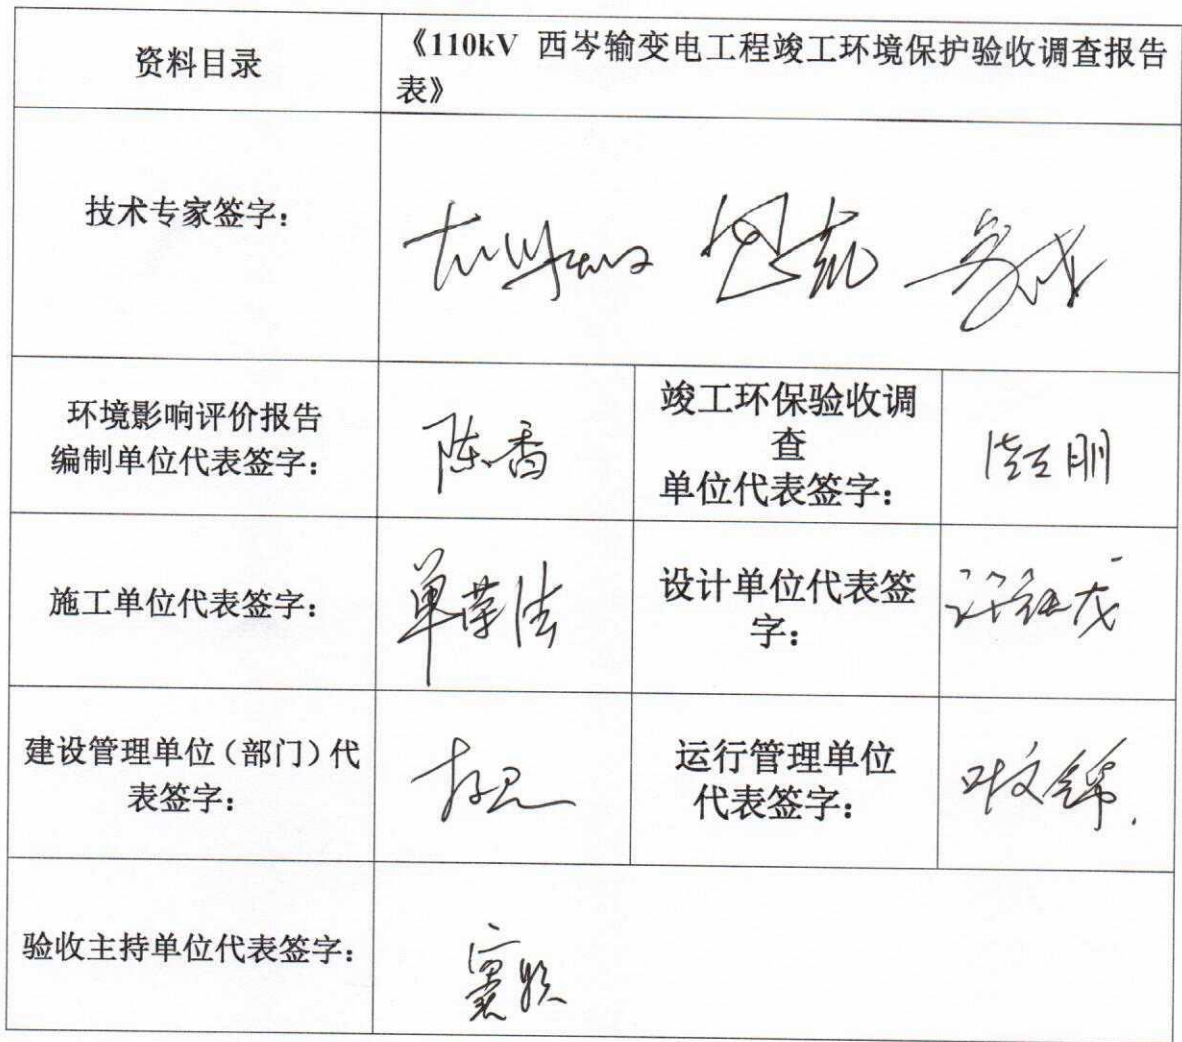 资料目录
《110kV 西岑输变电工程竣工环境保护验收调查报告
表》
技术专家签字：
环境影响评价报告
编制单位代表签字：
陈香
竣工环保验收调
查
单位代表签字：
施工单位代表签字：
单荣法
设计单位代表签
字：
建设管理单位（部门）代
表签字：
运行管理单位
代表签字：
验收主持单位代表签字：